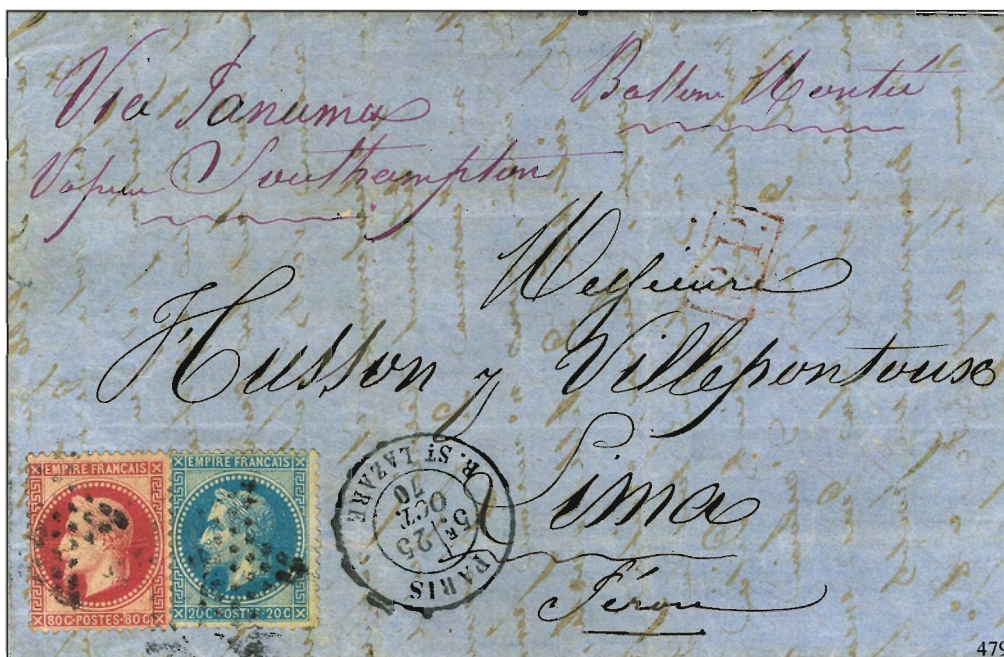 Via Panama
Ballon Monté
Vapeur Southampton
P.P.
Messieurs
Husson y Villepontoux
Lima
Pérou
EMPIRE FRANÇAIS
80C-POSTES-80C
EMPIRE FRANÇAIS
20C-POSTES-20C
PARIS
R. ST LAZARE
5E
25
OCT.
70
479